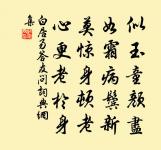 似玉童顏盡
如霜病鬢新
莫驚身頓老
心更老於身
白居易答友問詞典網
集